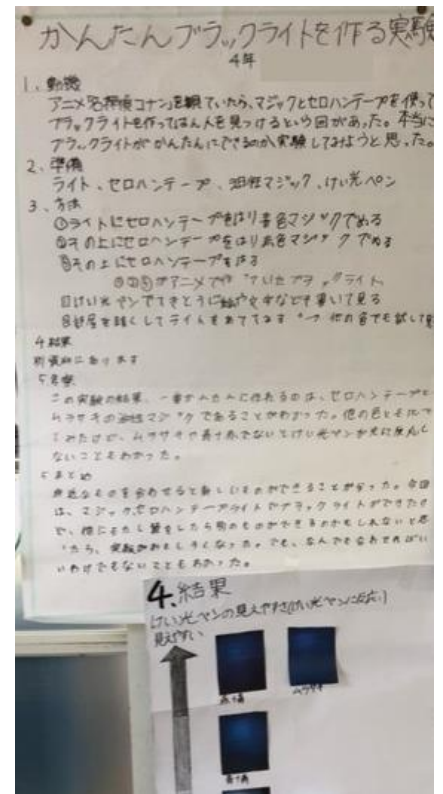 かんたんブラックライトを作る実験
4年
1、動機
アニメ名探偵コナン」を観ていたら、マジックとセロハンテープを使って
ブラックライトを作ってはん人を見つけるという回があった。本当に
ブラックライトがかんたんにできるのか実験してみようと思った。
2、準備
ライト、セロハンテープ、油性マジック、けい光ペン
3、方法
①ライトにセロハンテープをはり青色マジックでぬる
②その上にセロハンテープをはり
マジックでぬる
③その上にセロハンテープをはる
けい光ペンでてきとうに絵や文字などを書いて見る
部屋を暗くしてライトをあててみます
他の色でも試して見
4結果
別
にあります
5考察
この実験の結果、一番かんたんに作れるのは、セロハンテープと
ムラサキの油性マジックであることがわかった。他の色とも
てみたけど、ムラサキや青
でないとけい光ペンが
ないこともわかった。
まとめ
身近なものを合わせると新しいものができることが分った。今回
は、マジックとセロハンテープライトでブラックライトができたけ
ど、他にもたし算をしたら別のものができるのかもしれないと思
ったら、実験がおもしろくなった。でも、なんでも合わせればい
いわけでもないこともわかった。
4.結果
けい光ペンの見えやすさ(けい光ペンに反応)
見えやすい
ムラサキ